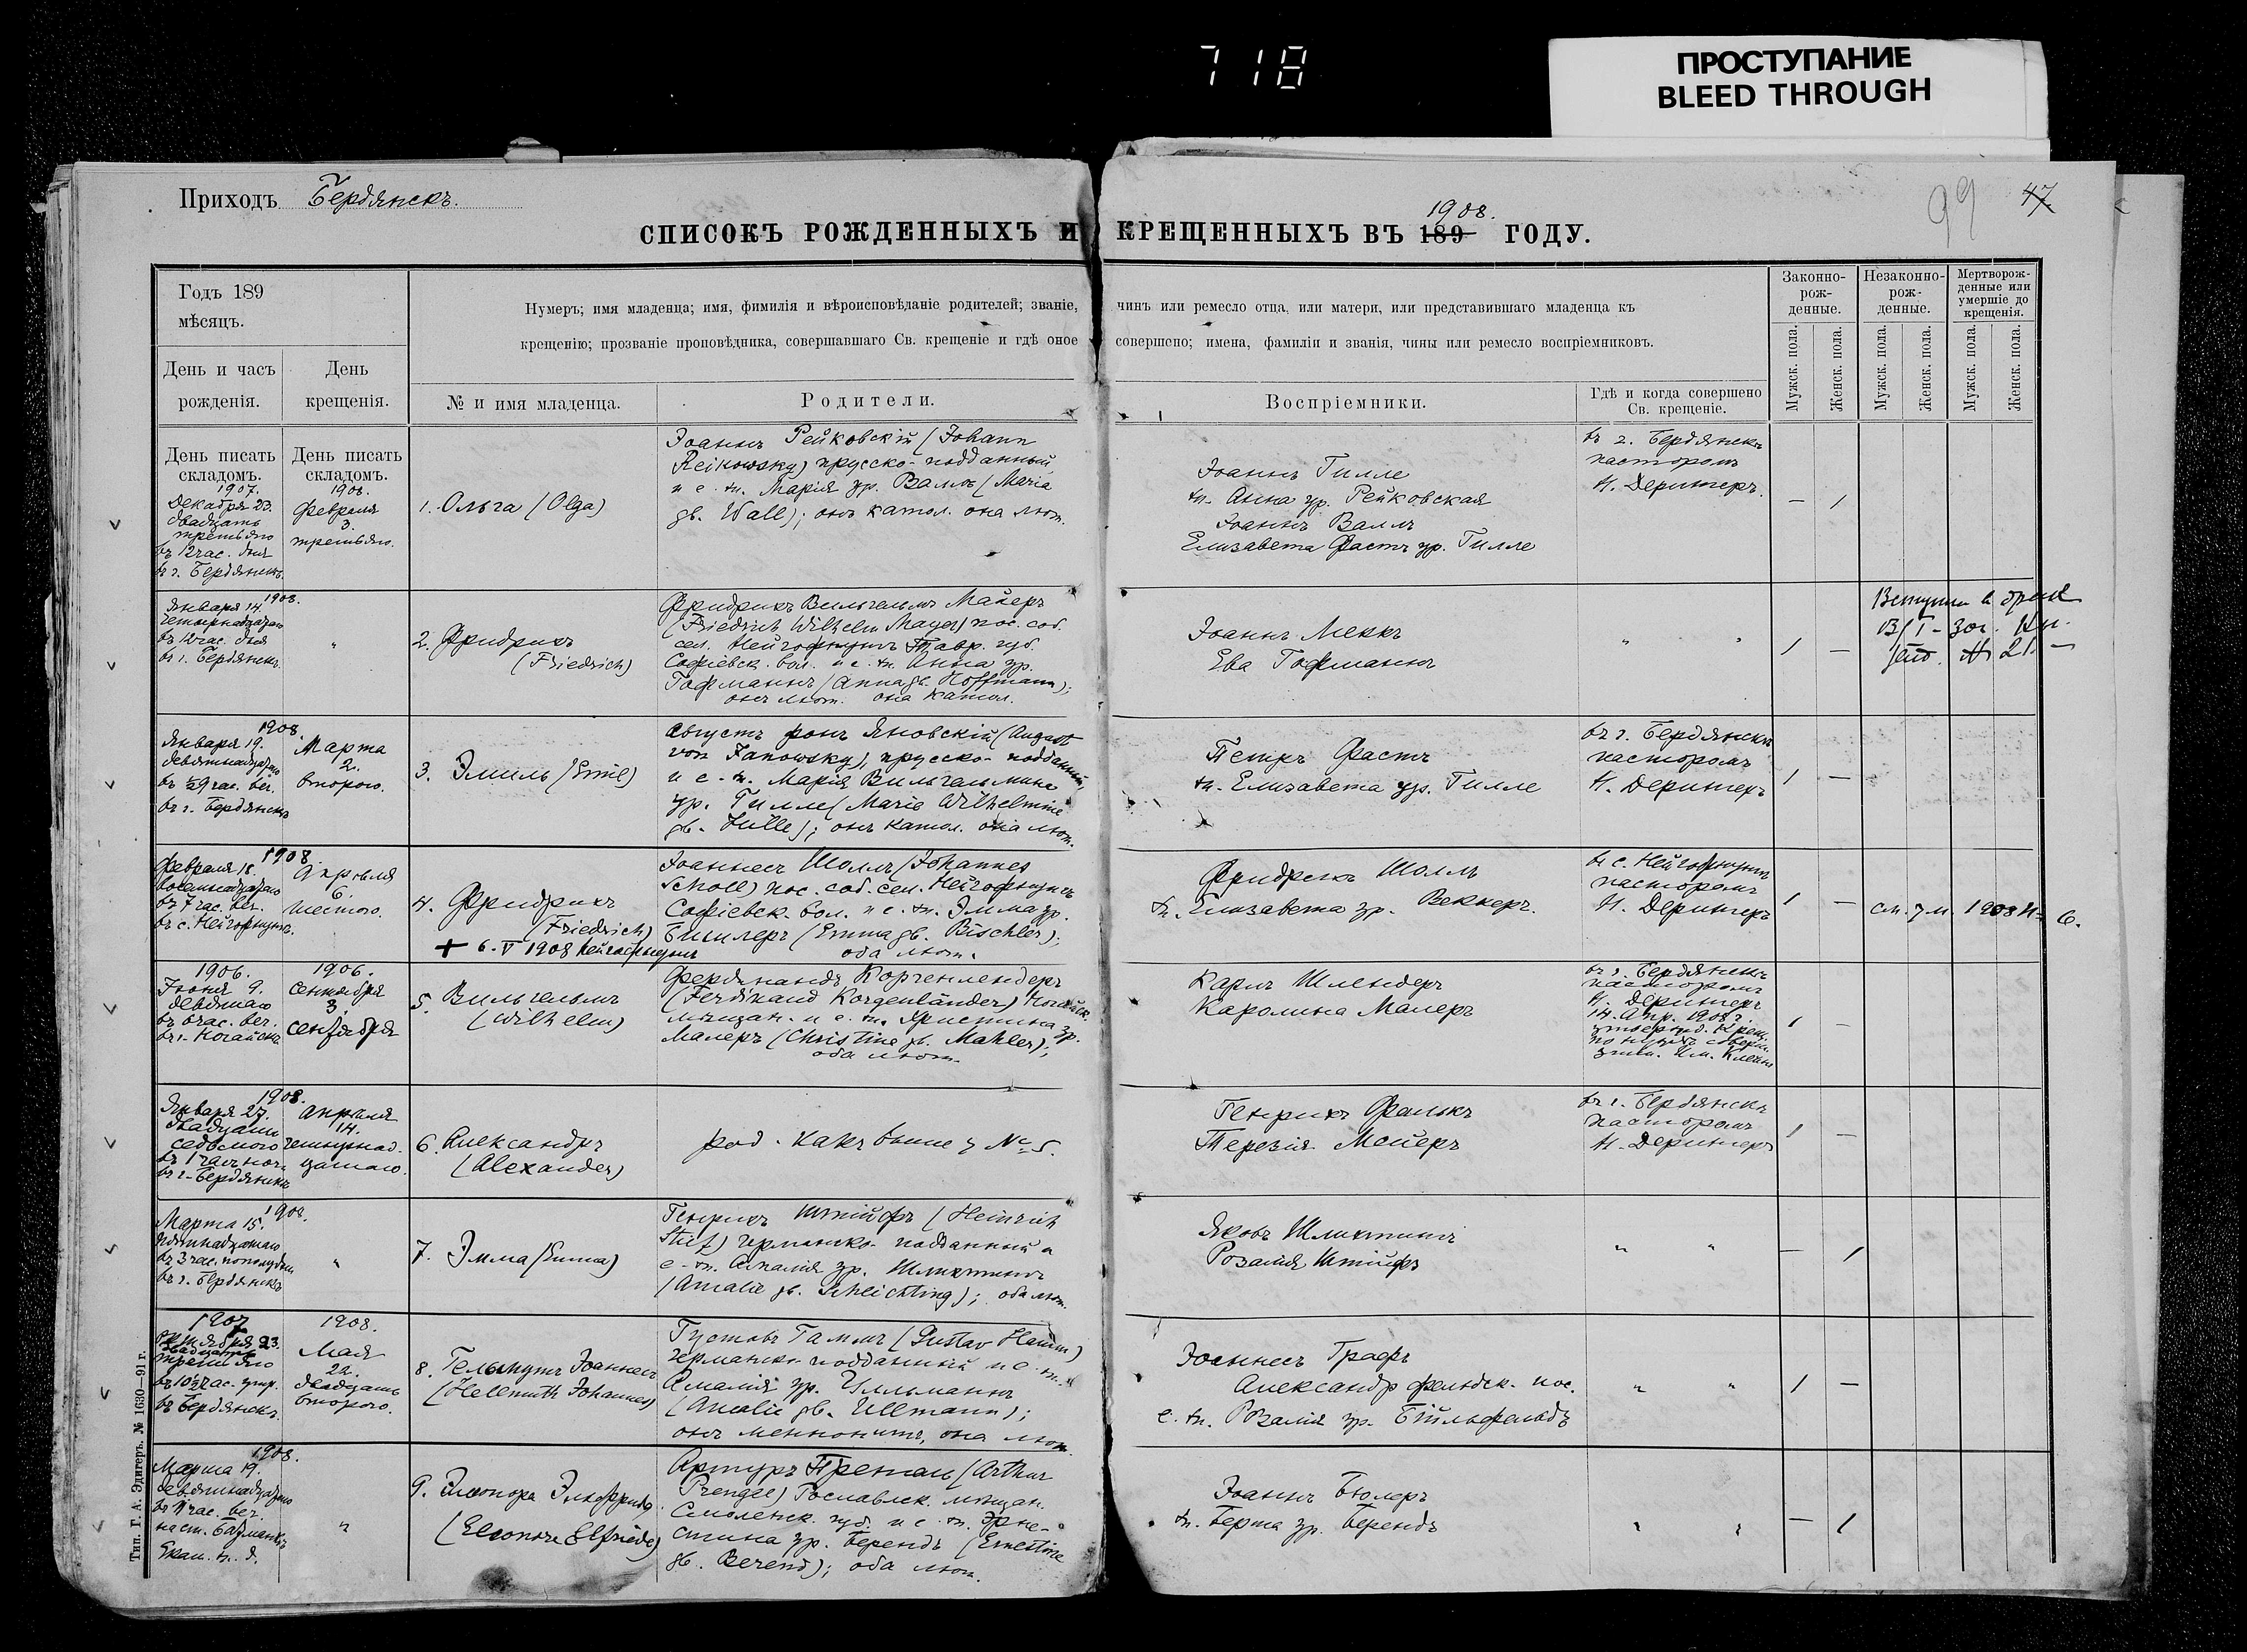 718
ПРОСТУПАНИЕ
BLEED THROUGH
Приходъ Бердянскъ.
99 47
1908.
СПИСОКЪ РОЖДЕННЫХЪ И КРЕЩЕННЫХЪ ВЪ 189 ГОДУ.
Годъ 189
мѣсяцъ.
День и часъ
рожденія.
День
крещенія.
Нумеръ; имя младенца; имя, фимилія и вѣроисповѣданіе родителей; званіе, чинъ или ремесло отца, или матери, или представившаго младенца къ
крещенію; прозваніе проповѣдника, совершавшаго Св. крещеніе и гдѣ оное совершено; имена, фамиліи и званія, чины или ремесло воспріемниковъ.
№ и имя младенца.
Родители.
Воспріемники.
Гдѣ и когда совершено
Св. крещеніе.
Законно-
рож-
денные.
Незаконно-
рож-
денные.
Мертворож-
денные или
умершіе до
крещенія.
Мужск. пола.
Женск. пола.
Мужск. пола.
Женск. пола.
Мужск. пола.
Женск. пола.
День писать
складомъ.
День писать
складомъ.
1907.
Декабря 23.
двадцать
третьяго
въ 12 час. дня
въ г. Бердянскъ.
1908.
Февраля
3.
третьяго.
1. Ольга (Olga)
Іоаннъ Рейковскій (Johann
Reikowsky) прусско-подданный,
и е. ж. Марія ур. Валлъ (Maria
gb. Wall); онъ катол. она лют.
Іоаннъ Гилле
ж. Анна ур. Рейковская
Іоаннъ Валлъ
Елизавета Фастъ ур. Гилле
въ г. Бердянскъ
пасторомъ
Н. Дерингеръ.
— 1
1908.
Января 14.
четырнадцатаго
въ 12 час. дня
въ г. Бердянскъ.
"
2. Фридрихъ
(Friedrich)
Фридрихъ Вильгельмъ Майеръ
(Friedrich Wilhelm Mayer) пос. соб.
сел. Нейгофнунгъ Тавр. губ.
Софіевск. вол. и е. ж. Анна ур.
Гофманнъ (Anna gb. Hoffmann);
онъ лют. она катол.
Іоаннъ Меккъ
Ева Гофманнъ
" "
1 —
№ 21. —
1908.
Января 19.
девятнадцатаго
въ ½9 час. веч.
въ г. Бердянскъ
Марта
2.
второго.
3. Эмиль (Emil)
Августъ фонъ Яновскій (August
von Janowsky), прусско-подданный,
и е. ж. Марія Вильгельмина
ур. Гилле (Marie Wilhelmine
gb. Hille); онъ катол. она лют.
Петръ Фастъ
ж. Елизавета ур. Гилле
въ г. Бердянскъ
пасторомъ
Н. Дерингеръ
1 —
1908
Февраля 18.
восемнадцатаго
въ 7 час. веч.
въ с. Нейгофнунгъ.
Апрѣля
6.
шестого.
4. Фридрихъ
(Friedrich)
+ 6. V 1908 Нейгофнунгъ
Іоаннесъ Шоллъ (Johannes
Scholl) пос. соб. сел. Нейгофнунгъ
Софіевск. вол. и е. ж. Эмма ур.
Бишлеръ (Emma gb. Bischler);
оба лют.
Фридрихъ Шоллъ
ж. Елизавета ур. Веккеръ.
въ с. Нейгофнунгъ
пасторомъ
Н. Дерингеръ
1 —
см. ум. 1908 № 6.
1906.
Іюня 9.
девятаго
въ 6 час. веч.
въ г. Ногайскъ
1906.
Сентября
3.
сентября
5. Вильгельмъ
(Wilhelm)
Фердинандъ Коргенлендеръ
(Ferdinand Korgenländer) Ногайск.
мѣщан. и е. ж. Христина ур.
Малеръ (Christine gb. Mahler);
оба лют.
Карлъ Шлендеръ
Каролина Малеръ
въ г. Бердянскъ
пасторомъ
Н. Дерингеръ
14. Апр. 1908 г.
1 —
1908.
Января 27.
двадцать
седьмого
въ 1 час. ноч.
въ г. Бердянскъ
Апрѣля
14.
четырнад-
цатаго.
6. Александръ
(Alexander)
род. какъ выше у № 5.
Генрихъ Фалькъ
Терезія Мейеръ
въ г. Бердянскъ
пасторомъ
Н. Дерингеръ
1 —
1908.
Марта 15.
пятнадцатаго
въ 3 час. пополудни
въ г. Бердянскъ
"
7. Эмма (Emma)
Генрихъ Штифъ (Heinrich
Stief) германско-подданный и
е. ж. Амалія ур. Шлихтингъ
(Amalie gb. Schlichting); оба лют.
Яковъ Шлихтингъ
Розалія Штифъ
" "
— 1
1907
октября 23.
двадцать
третьяго
въ 10½ час. утр.
въ Бердянскъ.
1908.
Мая
22.
двадцать
второго.
8. Гельмутъ Іоаннесъ
(Hellmuth Johannes)
Густавъ Гаммъ (Gustav Hamm)
германско-подданный и е. ж.
Амалія ур. Улльманнъ
(Amalie gb. Ullmann);
онъ меннонитъ, она лют.
Іоаннесъ Графъ
Александр фельдск. пос.
е. ж. Розалія ур. Бильфельдъ
" "
1 —
1908.
Марта 19.
девятнадцатаго
въ 11 час. веч.
на ст. Бауманнъ
Екат. ж. д.
"
9. Элеонора Эльфрида
(Eleonore Elfriede)
Артуръ Пренгель (Arthur
Prengel) Рославльск. мѣщан.
Смоленск. губ. и е. ж. Эрне-
стина ур. Берендъ (Ernestine
gb. Berend); оба лют.
Іоаннъ Бюлеръ
ж. Берта ур. Берендъ
" "
— 1
Тип. Г. А. Эдигеръ. № 1630—91 г.